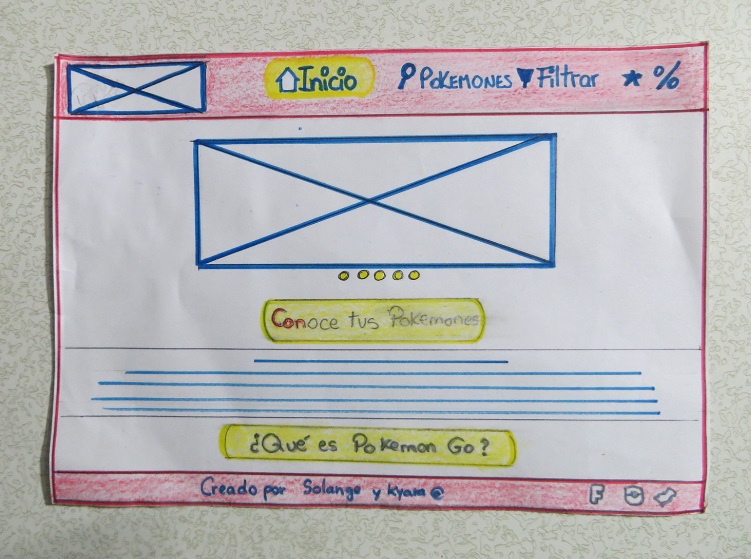 Inicio POKEMONES Filtrar * %
Conoce tus Pokemones
¿Qué es Pokemon Go?
Creado por Solange y kyara @
F